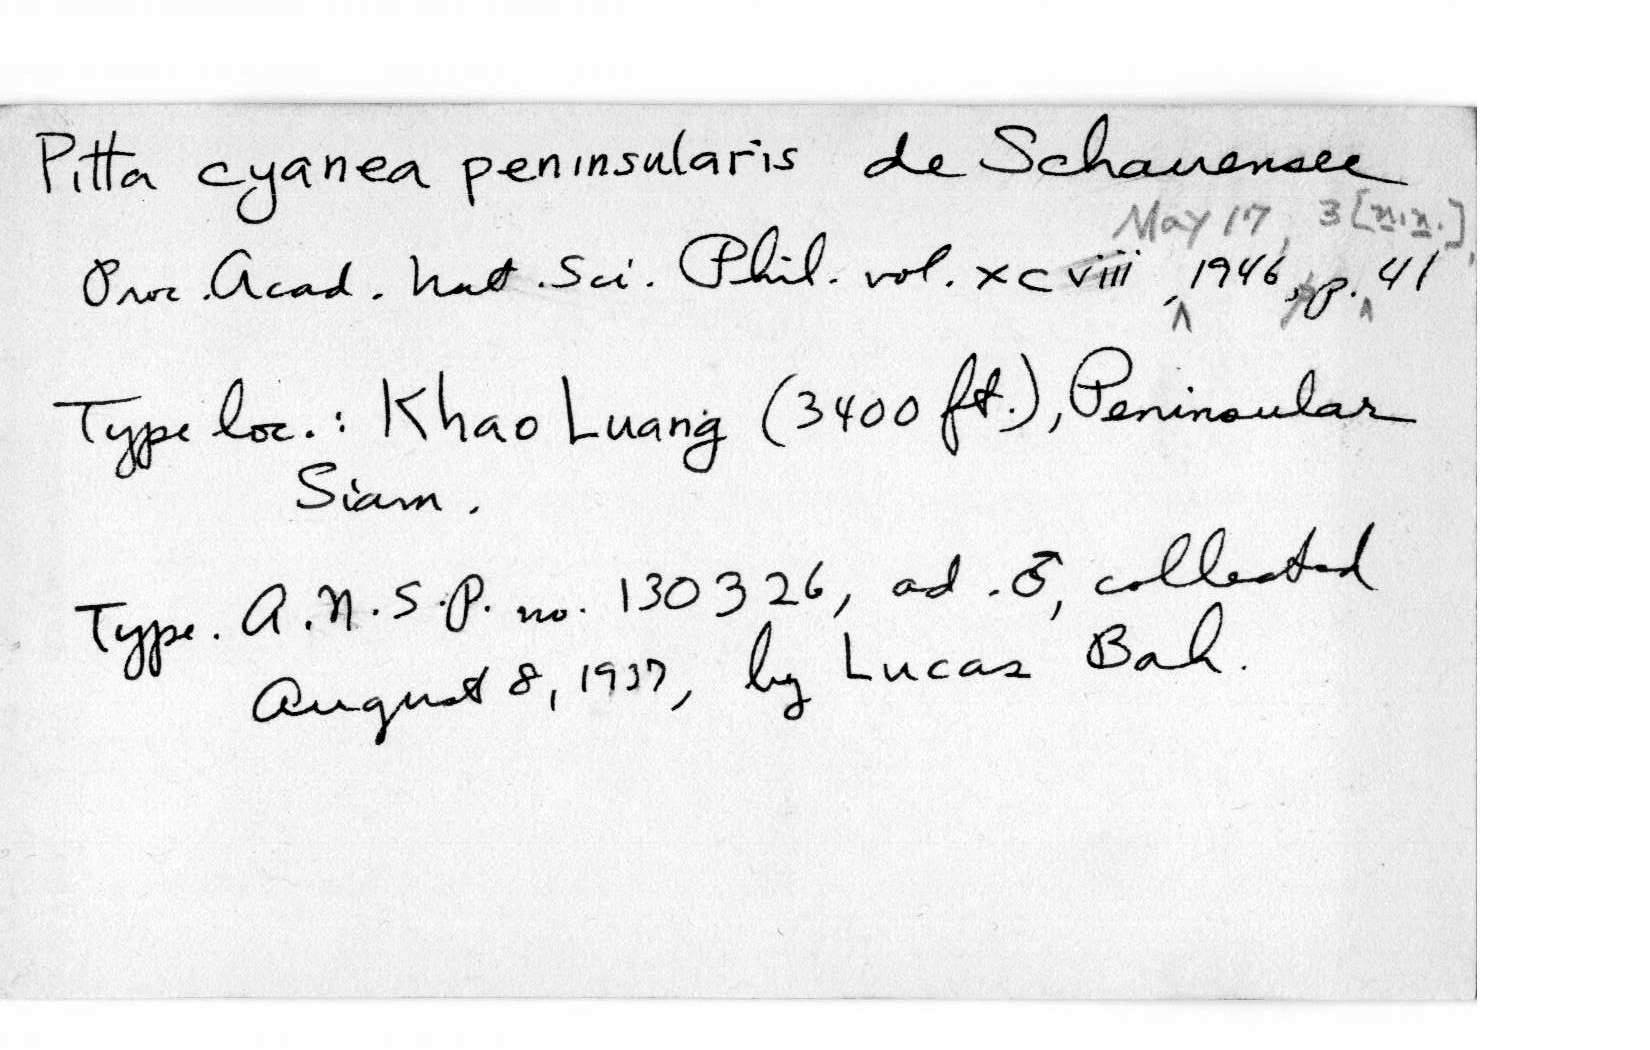 Pitta cyanea peninsularis de Schauensee
May 17, 3 [n.n.],
Proc. Acad. Nat. Sci. Phil. vol. xcviii, 1946, p. 41
Type loc.: Khao Luang (3400 ft.), Peninsular
Siam.
Type. A.N.S.P. no. 130326, ad. ♂, collected
August 8, 1937, by Lucas Bah.